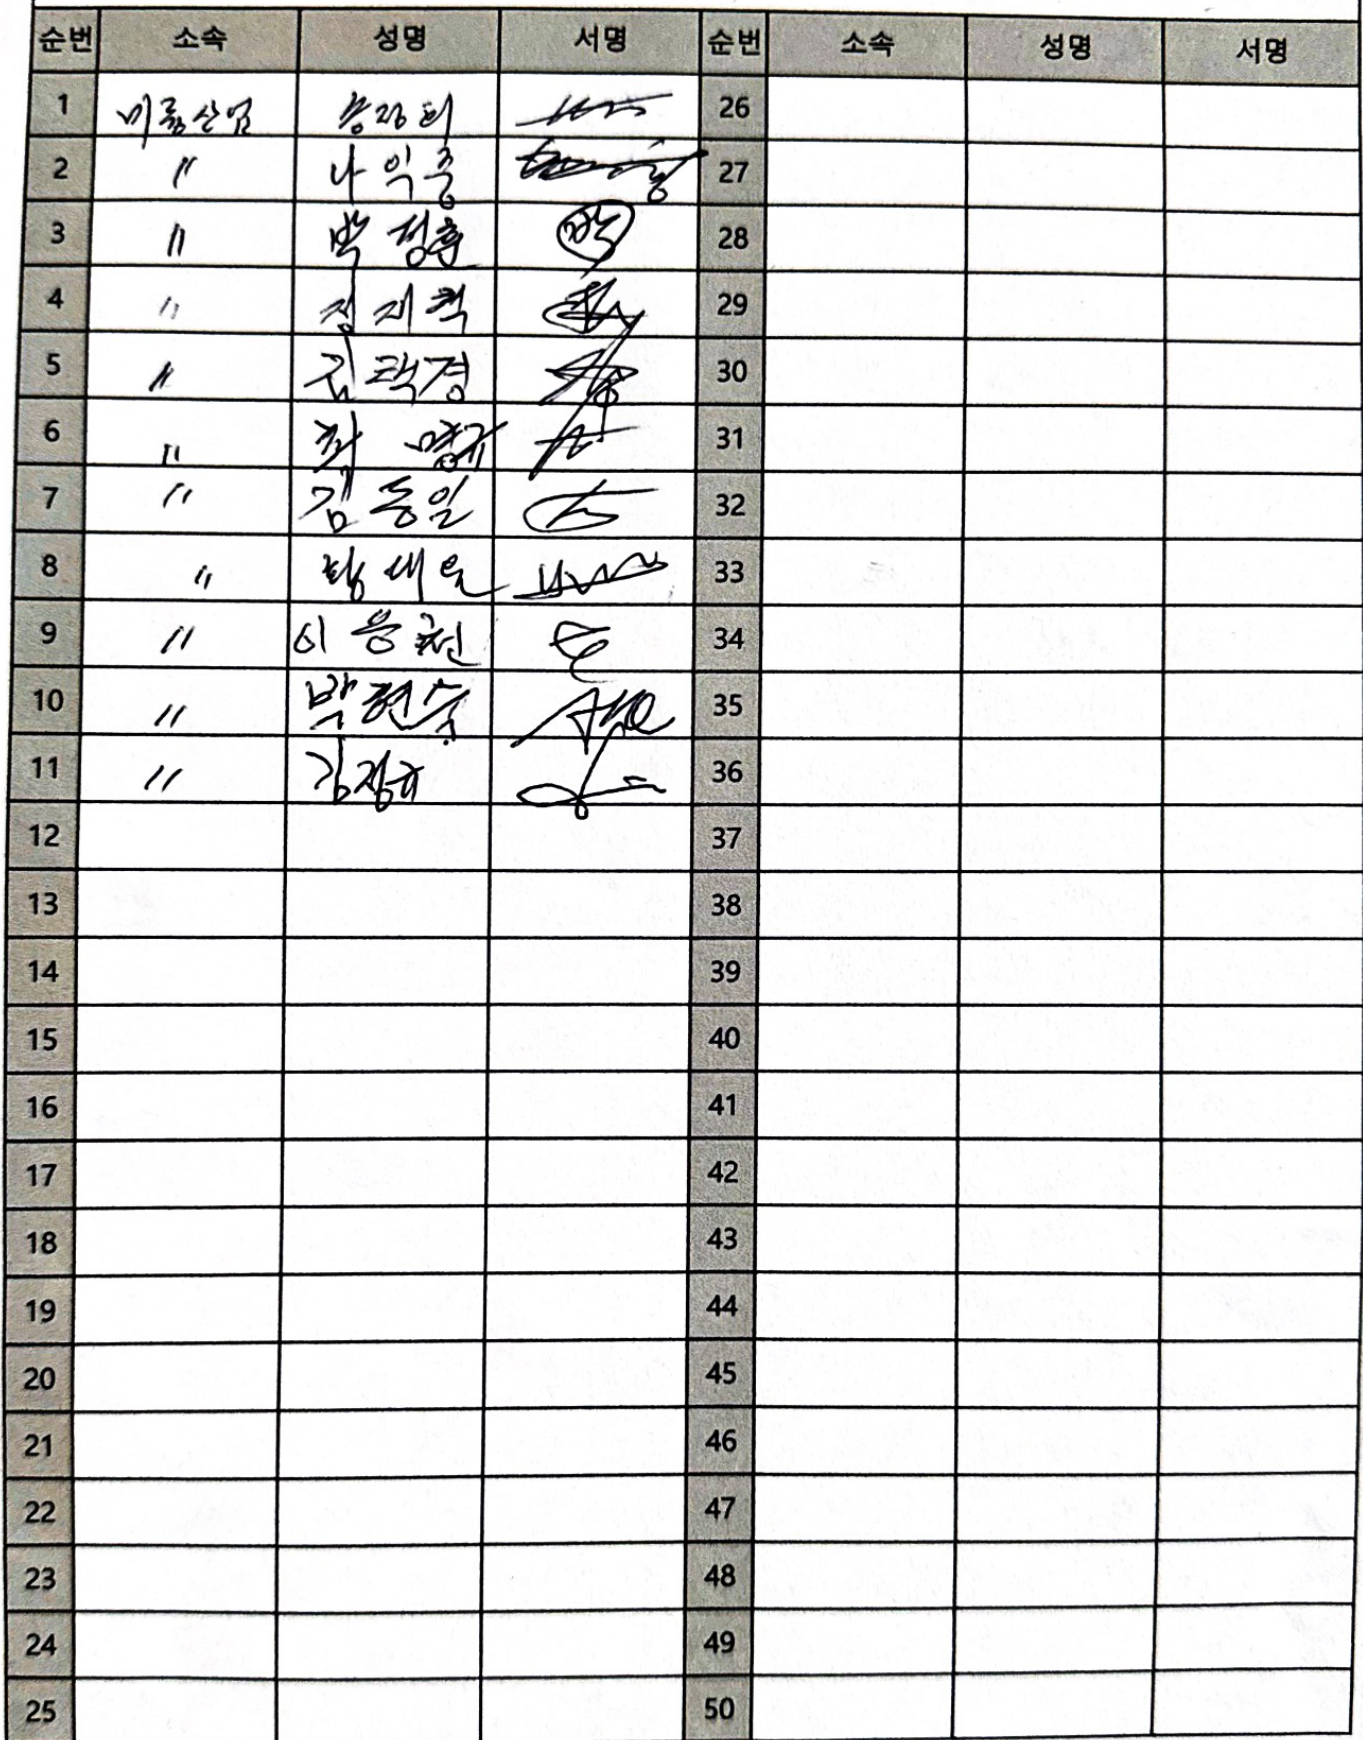 순번 소속 성명 서명 순번 소속 성명 서명
1 26
2 〃 나익중 27
3 〃 박정훈 박 28
4 〃 29
5 〃 김택경 30
6 〃 31
7 〃 김동일 32
8 〃 33
9 〃 이응천 34
10 〃 박현숙 35
11 〃 36
12 37
13 38
14 39
15 40
16 41
17 42
18 43
19 44
20 45
21 46
22 47
23 48
24 49
25 50